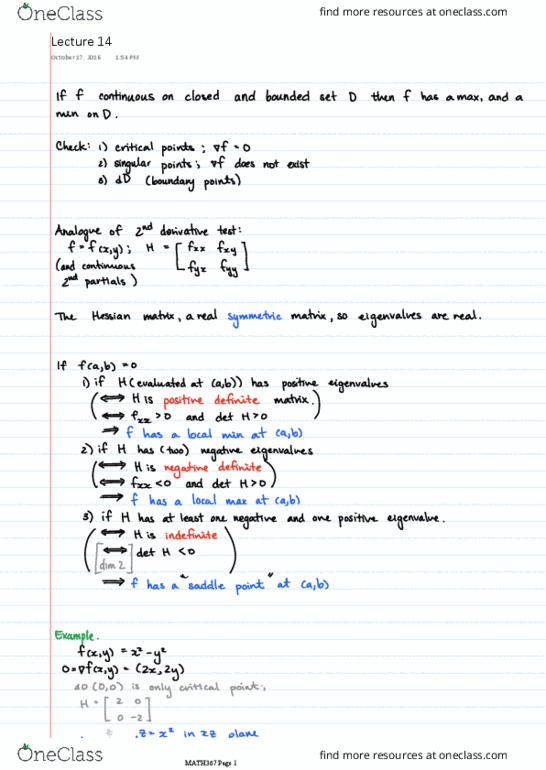 OneClass
find more resources at oneclass.com
Lecture 14
October 17, 2016 1:54 PM
If f continuous on closed and bounded set D then f has a max, and a
min on D.
Check: 1) critical points; ∇f = 0
2) singular points; ∇f does not exist
3) dD (boundary points)
Analogue of 2nd derivative test:
f = f(x,y); H = [fxx fxy
(and continuous fyx fyy]
2nd partials)
The Hessian matrix, a real symmetric matrix, so eigenvalues are real.
If f(a,b) = 0
1) if H (evaluated at (a,b)) has positive eigenvalues
(⟺ H is positive definite matrix.
⟺ fxx > 0 and det H > 0)
⟹ f has a local min at (a,b)
2) if H has (two) negative eigenvalues
(⟺ H is negative definite
⟺ fxx < 0 and det H > 0)
⟹ f has a local max at (a,b)
3) if H has at least one negative and one positive eigenvalue.
(⟺ H is indefinite
[⟺ det H < 0
dim 2])
⟹ f has a "saddle point" at (a,b)
Example.
f(x,y) = x² - y²
0 = ∇f(x,y) = (2x, 2y)
so (0,0) is only critical point;
H = [2 0
0 -2]
z = x² in xz plane
OneClass
MATH367 Page 1
find more resources at oneclass.com